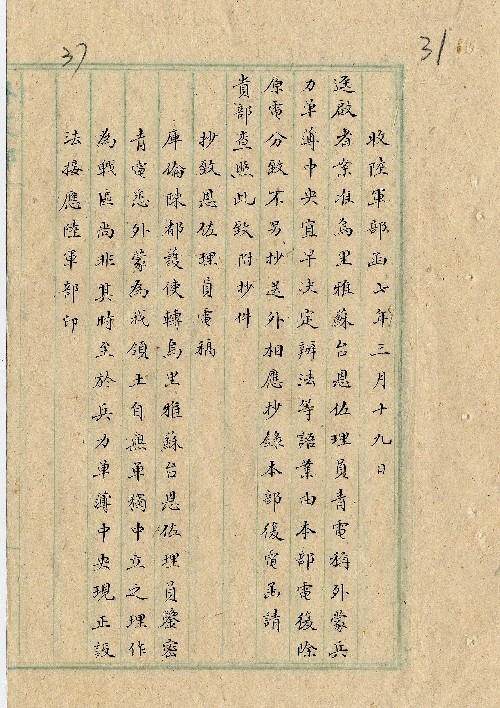 31
37
收陸軍部函七年三月十九日
逕啟者案准烏里雅蘇台恩佐理員青電稱外蒙兵
力單薄中央宜早決定辦法等語業由本部電復除
原電分致不另抄送外相應抄錄本部復電函請
貴部查照此致附抄件
抄致恩佐理員電稿
庫倫陳都護使轉烏里雅蘇台恩佐理員鑒密
青電悉外蒙為我領土自無單獨中立之理作
為戰區尚非其時至於兵力單薄中央現正設
法接應陸軍部印